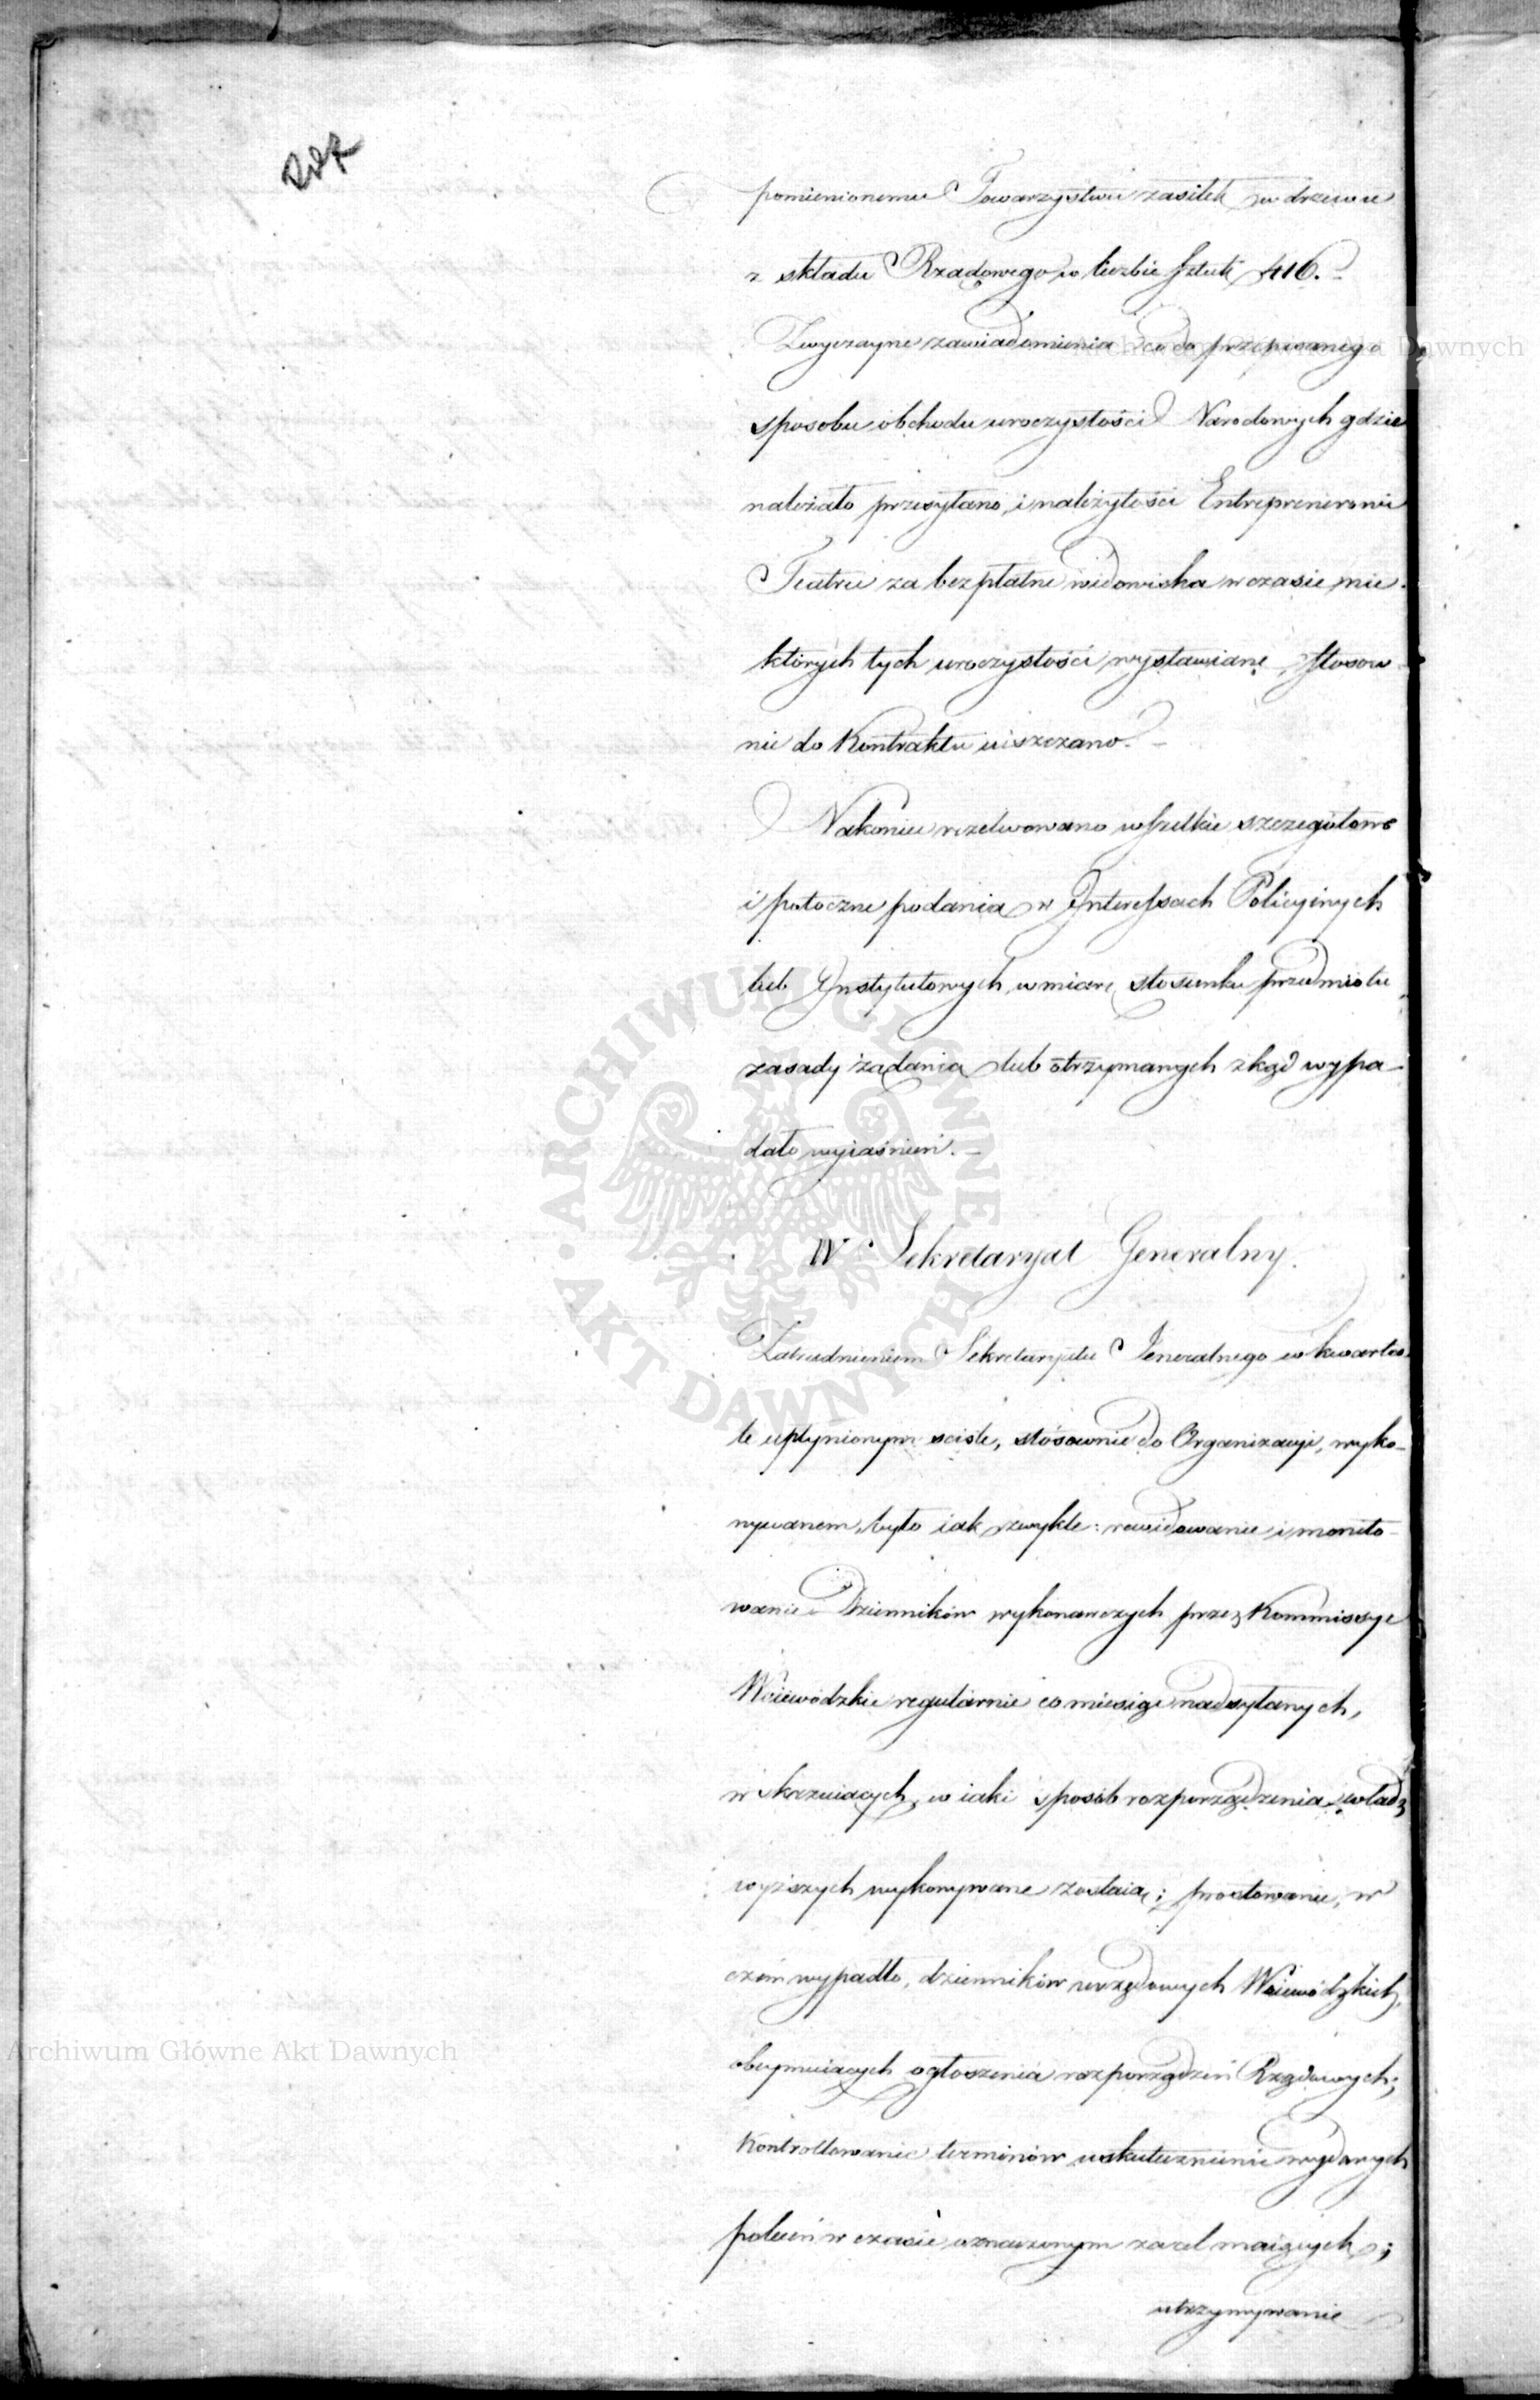 pomienionemu Towarzystwu zasiłek w drzewie
z składu Rządowego w liczbie sztuk 416.
Zwyczayne zawiadomienia co do przepisanego
sposobu obchodu uroczystości Narodowych gdzie
należało przesyłano, i należytości Entreprenerowi
Teatru za bezpłatne widowiska w czasie nie-
których tych uroczystości wystawiane, stosow-
nie do Kontraktu uiszczano.
Nakoniec rezolwowano wszelkie szczegółowe
i potoczne podania w Interessach Policyinych
lub Instytutowych, w miarę stosunku przedmiotu
zasady żądania lub otrzymanych zkąd wypa-
dało wyiaśnień.
IV Sekretaryat Generalny.
Zatrudnieniem Sekretaryatu Jeneralnego w kwarta-
le upłynionym ściśle, stósownie do Organizacyi, wyko-
nywanem, było iak zwykle: rewidowanie i monito-
wanie Dzienników wykonawczych przez Kommissye
Woiewódzkie regularnie co miesiąc nadsyłanych,
wskazuiących, w iaki sposób rozporządzenia władz
wyższych wykonywane zostaią; prostowanie, w
czém wypadło, dzienników urzędowych Woiewódzkich,
obeymuiących ogłoszenia rozporządzeń Rządowych;
Kontrollowanie terminów uskutecznienie wydanych
poleceń w czasie oznaczonym za cel maiących;
utrzymywanie
Archiwum Główne Akt Dawnych
Archiwum Główne Akt Dawnych
ARCHIWUM GŁÓWNE · AKT DAWNYCH ·